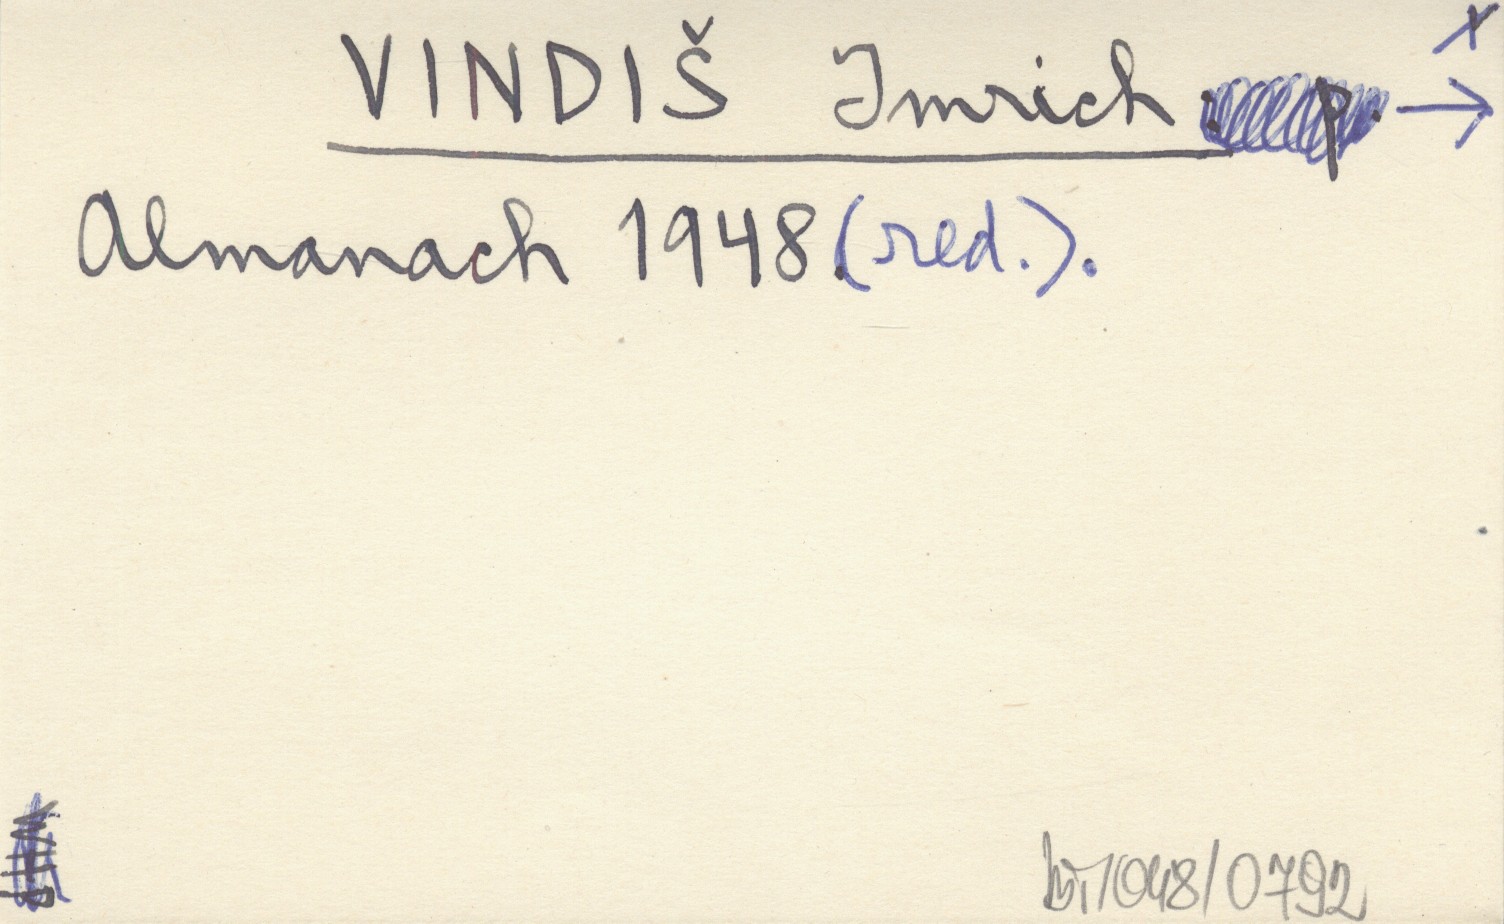 VINDIŠ Imrich
Almanach 1948 (red.).
br/048/0792